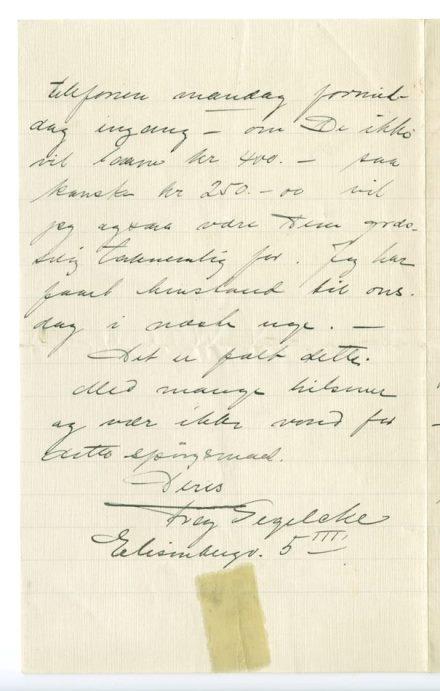 telefonen mandag formid-
dag engang – om De ikke
vil laane kr 400. – saa
kanske kr 250. – oo vil
jeg ogsaa være Dem græs-
selig taknemlig for. Jeg har
faaet henstand til ons-
dag i næste uge. –
Det er fælt dette.
Med mange hilsener
og vær ikke vond for
dette spörgsmaal.
Deres
Tegelcke
Eilisenbergv. 5 III